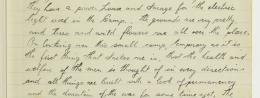 They have a power house and Garage for the electric
light used in the Camp. The grounds are very pretty
and trees and wild flowers are all over the place.
In looking over this small camp, temporary as it is,
the first thing that strikes me is, that the health and
welfare of the men is thought of in every direction
and all things are built with a look of permanency
and the duration of the war for some time yet. The